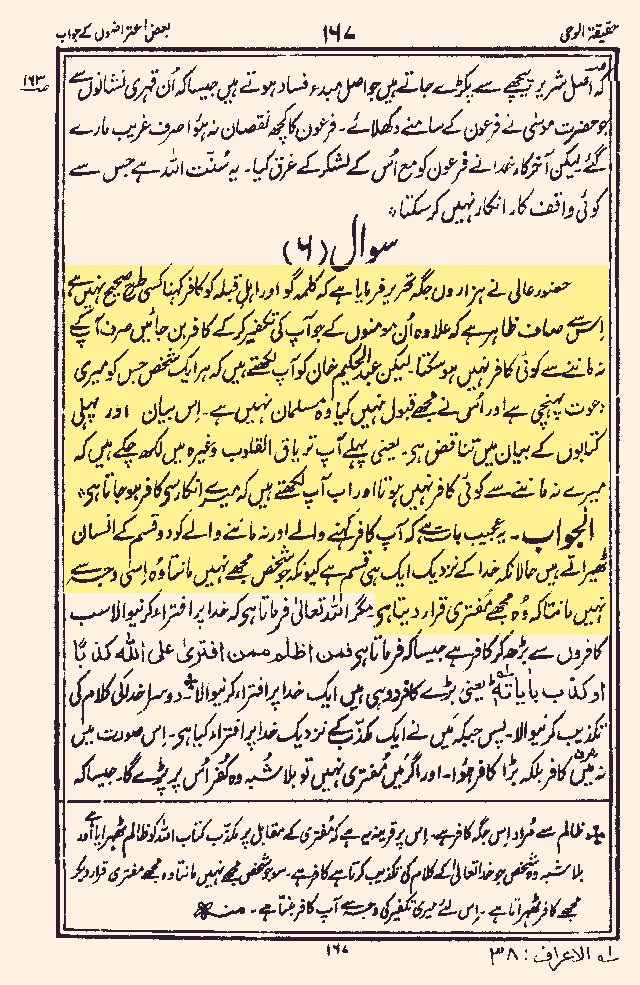 حقیقۃ الوحی ۱۶۷ بعض اعتراضوں کے جواب
کہ اصل شریر پیچھے سے پکڑے جاتے ہیں جو اصل مبدء فساد ہوتے ہیں جیسا کہ اُن قہری نشانوں سے
صـ ۱۶۳
جو حضرت موسیٰ نے فرعون کے سامنے دکھلائے۔ فرعون کا کچھ نقصان نہ ہُوا صرف غریب مارے
گئے لیکن آخر کار خدا نے فرعون کو مع اُس کے لشکر کے غرق کیا۔ یہ سُنّت اللہ ہے جس سے
کوئی واقف کار انکار نہیں کر سکتا؞
سوال (۶)
حضور عالی نے ہزاروں جگہ تحریر فرمایا ہے کہ کلمہ گو اور اہلِ قبلہ کو کافر کہنا کسی طرح صحیح نہیں ہے
اِس سے صاف ظاہر ہے کہ علاوہ اُن مومنوں کے جو آپ کی تکفیر کر کے کافر بن جائیں صرف آپ کے
نہ ماننے سے کوئی کافر نہیں ہو سکتا۔ لیکن عبد الحکیم خان کو آپ لکھتے ہیں کہ ہر ایک شخص جس کو میری
دعوت پہنچی ہے اور اُس نے مجھے قبول نہیں کیا وُہ مسلمان نہیں ہے۔ اِس بیان اور پہلی
کتابوں کے بیان میں تناقض ہی۔ یعنی پہلے آپ تریاق القلوب وغیرہ میں لکھ چکے ہیں کہ
میرے نہ ماننے سے کوئی کافر نہیں ہوتا اور اب آپ لکھتے ہیں کہ میرے انکار سی کافر ہو جاتا ہی؞
الجواب۔ یہ عجیب بات ہے کہ آپ کافر کہنے والے اور نہ ماننے والے کو دو قسم کے انسان
ٹھہراتے ہیں حالانکہ خدا کے نزدیک ایک ہی قسم ہے کیونکہ جو شخص مجھے نہیں مانتا وُہ اِسی وجہ سے
نہیں مانتا کہ وُہ مجھے مُفتری قرار دیتا ہی مگر اللہ تعالیٰ فرماتا ہی کہ خدا پر افتراء کرنیوالا سب
کافروں سے بڑھ کر کافر ہے جیسا کہ فرماتا ہی فمن اظلم ممن افترٰی علی اللہ کذبًا
او کذب باٰیاتہٖ لہ یعنی بڑے کافر دو ہی ہیں ایک خدا پر افتراء کرنیوالا دوسرا خدا کی کلام کی
تکذیب کرنیوالا۔ پس جبکہ مَیں نے ایک مکذّب کے نزدیک خدا پر افترا کیا ہی۔ اِس صورت میں
نہ مَیں صرف کافر بلکہ بڑا کافر ہُوا۔ اور اگر مَیں مُفتری نہیں تو بلا شُبہ وہ کفر اُس پر پڑے گا۔ جیسا کہ
ظالم سے مُراد اِس جگہ کافر ہے۔ اِس پر قرینہ یہ ہے کہ مُفتری کے مقابل پر مکذّب کتاب اللہ کو ظالم ٹھہرایا ہے اور
بلا شبہ وہ شخص جو خدا تعالیٰ کے کلام کی تکذیب کرتا ہے کافر ہے۔ سو جو شخص مجھے نہیں مانتا وہ مجھے مفتری قرار دیکر
مجھے کافر ٹھہراتا ہے۔ اِس لئے میری تکفیر کی وجہ سے آپ کافر بنتا ہے۔ منہ
۱۶۷
لہ الاعراف : ۳۸